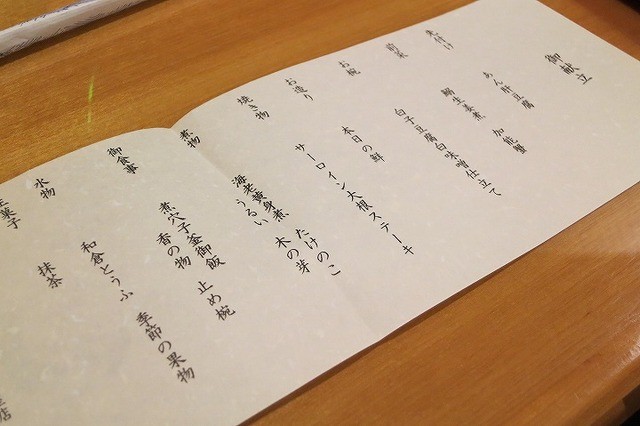 御献立
先付け あん肝豆腐 加能蟹
前菜 生姜煮
お椀 白子豆腐白味噌仕立て
お造り 本日の鮮
焼き物 サーロイン大根ステーキ
煮物 海老黄身煮 たけのこ
うるい 木の芽
御食事 煮穴子釜御飯 止め椀
香の物
水物 和倉とうふ 季節の果物
菓子 抹茶
店